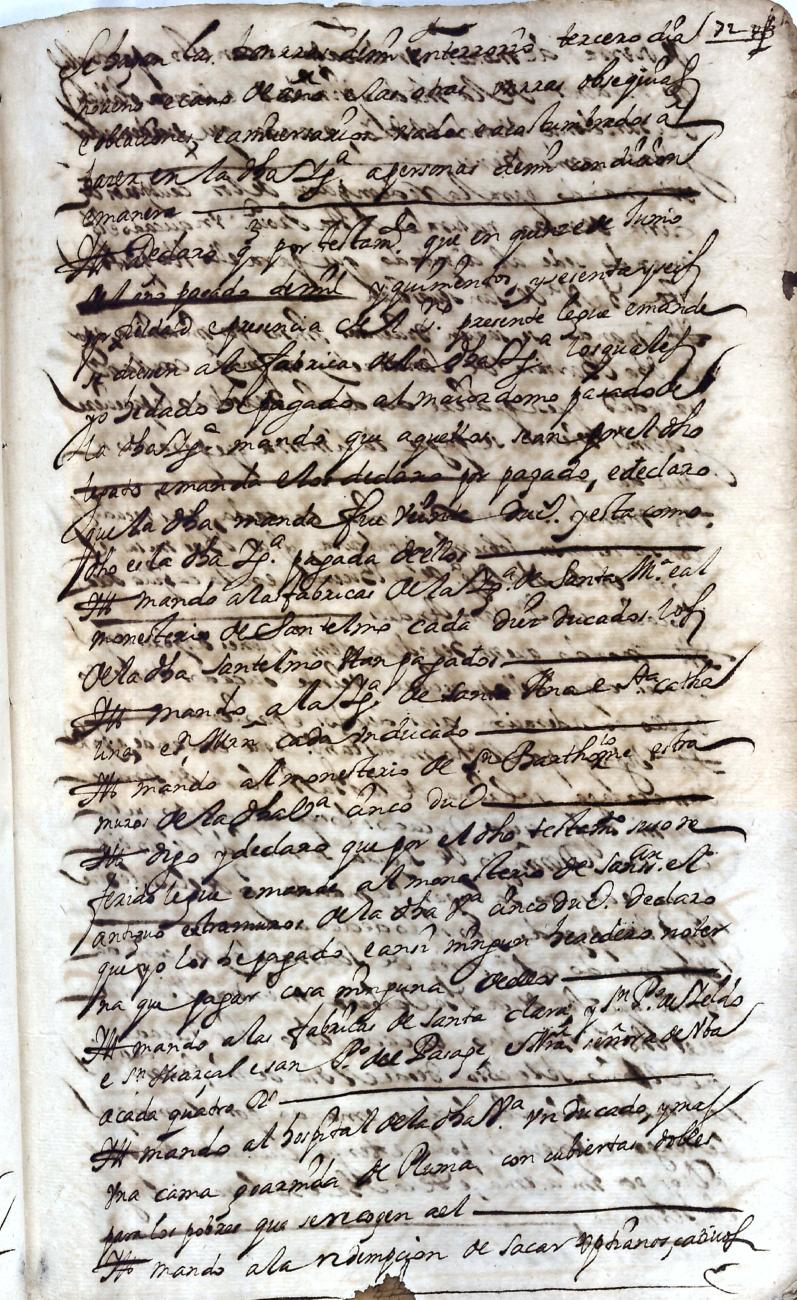 Se hagan las honrras de mi enterrorio tercero dia 72
noveno e cavo de año e las otras onrras obsequias
e oblaciones e aniversarios usados e acostumbrados a
fazer en la dha Yga a personas de mi condicion
e manera
Itt declaro q por testamto que en quinze de Junio
del año pasado de mill y quinientos y sesenta y seis
por fieldad e presencia del sno presente legue e mande
ducados a la fabrica de la dha Yga los quales
yo he dado e pagado al maiordomo pasado de
la dha Yga mando que aquellos sean por el dho
legato e manda e los declaro por pagado, e declaro
que la dha manda fue veinte dus. y esta como
dho es la dha Yga pagada dellos
Itt mando a las fabricas de la Yga de Santa Ma e al
monesterio de Santelmo cada diez ducados los
de la dha Santelmo stan pagados
Itt mando a la Yga de santa Ana e Sta catha
lina e sn Mrn cada un ducado
Itt mando al monesterio de sn Bartholome extra
muros de la dha Va cinco dus
Itt digo y declaro que por el dho testamto suso re
ferido legue e mande al monesterio de Sansn. el
antiguo extramuros de la dha Va cinco dus. declaro
que yo los he pagado e ansi ningun heredero no ter
na que pagar cosa ninguna dellos
Itt mando a las fabricas de Santa clara, y sn Po de
e sn Marçal e san Po del Pasage, señora de Uba
a cada quatro Rs
Itt mando al hospital de la dha Va un ducado, y mas
una cama guarnida de Pluma con cubiertas dobles
para los pobres que se recogen a el
Itt mando a la redempcion de sacar xptianos cativos